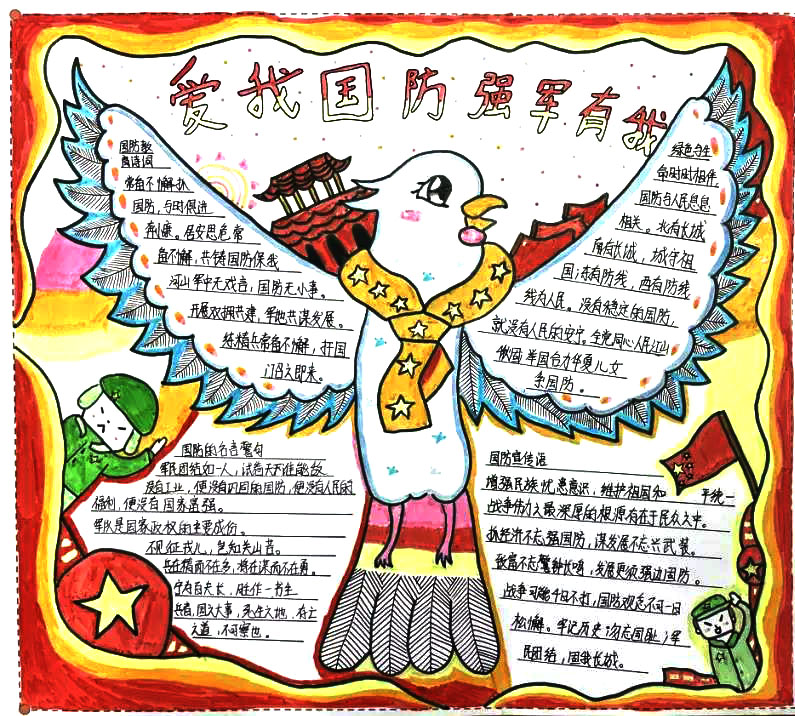 爱我国防强军有我
国防教
育诗词
常备不懈抓
国防,与时俱进
利康。居安思危常
备不懈,共铸国防保我
河山军中无戏言,国防无小事。
开展双拥共建,军地共谋发展。
练精兵常备不懈,扞国
门召之即来。
绿色与生
命时时相伴
国防与人民息息
相关。北有长城
南有长城,城守祖
国;东有防线,西有防线
线为人民。没有稳定的国防,
就没有人民的安宁。全党同心人民江山
举国合力华夏儿女
国防。
国防的名言警句
军民团结如一人,试看天下谁能敌
没有工业,便没有巩固的国防,便没有人民的
福利,便没有国家富强。
军队是国家政权的主要成份。
不见征戍儿,岂知关山苦。
兵在精而不在多,将在谋而不在勇。
宁为百夫长,胜作一书生
兵者,国之大事,死生之地,存亡
之道,不可察也。
国防宣传语
增强民族忧患意识,维护祖国和平统一
战争伟力之最深厚的根源存在于民众之中。
抓经济不忘强国防,谋发展不忘兴武装。
致富不忘警钟长鸣,发展更须强边固防。
战争可能千日不打,国防观念不可一日
松懈。牢记历史;勿忘国耻;军
民团结,固我长城。